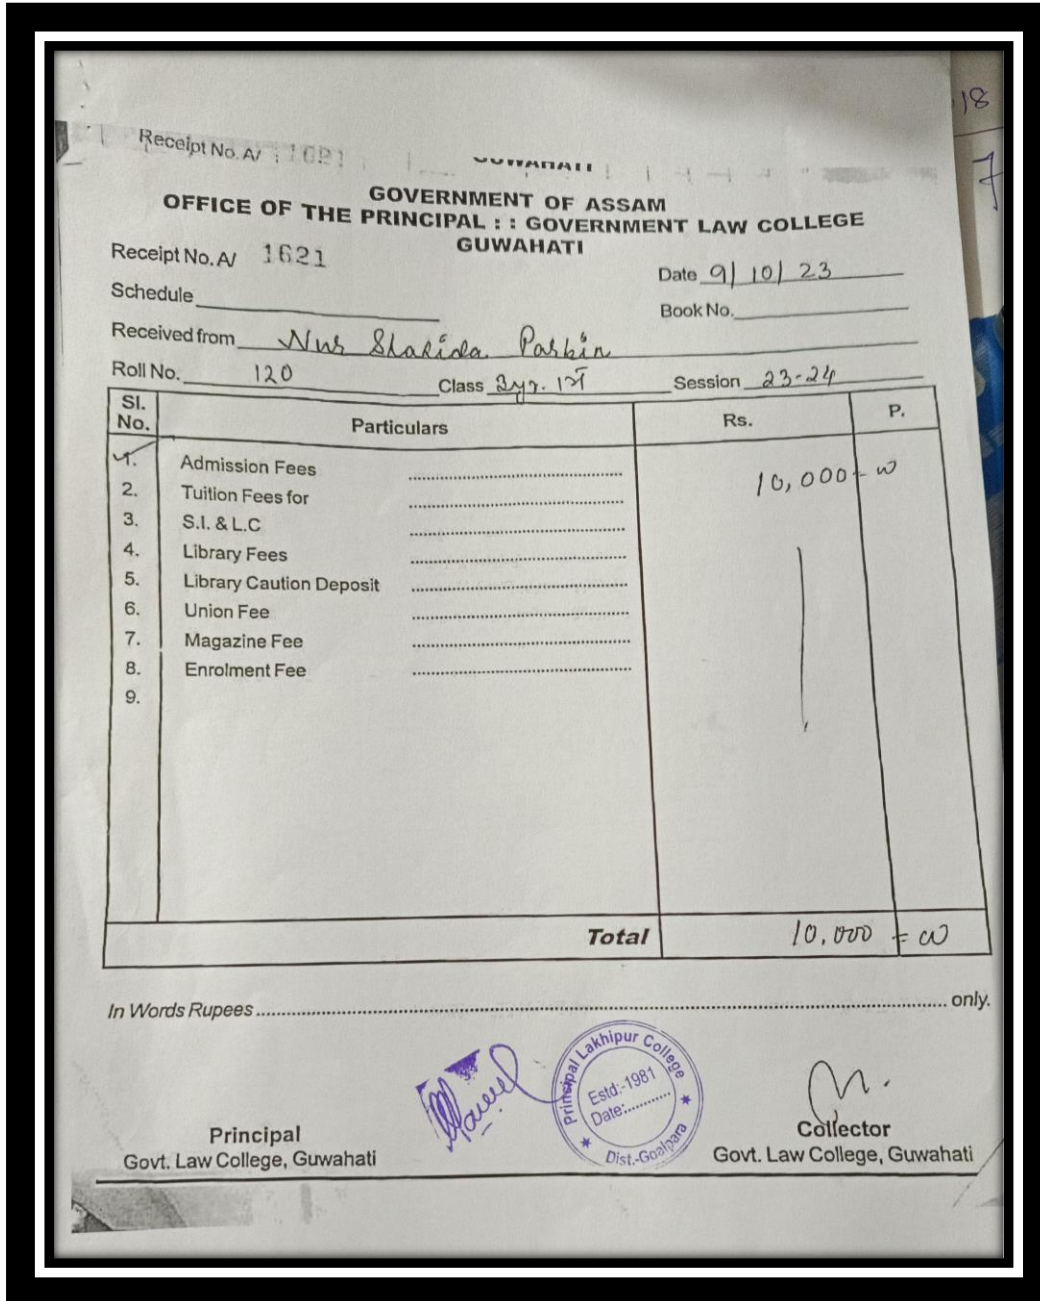 18
7
Receipt No. A/ 1621
GUWAHATI
GOVERNMENT OF ASSAM
OFFICE OF THE PRINCIPAL : : GOVERNMENT LAW COLLEGE
GUWAHATI
Receipt No. A/ 1621
Date 9/10/23
Schedule
Book No.
Received from Nur Sharida Parbin
Roll No. 120 Class 3yr. 1st Session 23-24
Sl. No. Particulars Rs. P.
1. Admission Fees 10,000 = 00
2. Tuition Fees for
3. S.I. & L.C
4. Library Fees
5. Library Caution Deposit
6. Union Fee
7. Magazine Fee
8. Enrolment Fee
9.
Total 10,000 = 00
In Words Rupees only.
Principal Lakhipur College
Estd:-1981
Date:
Dist.-Goalpara
Principal
Govt. Law College, Guwahati
Collector
Govt. Law College, Guwahati